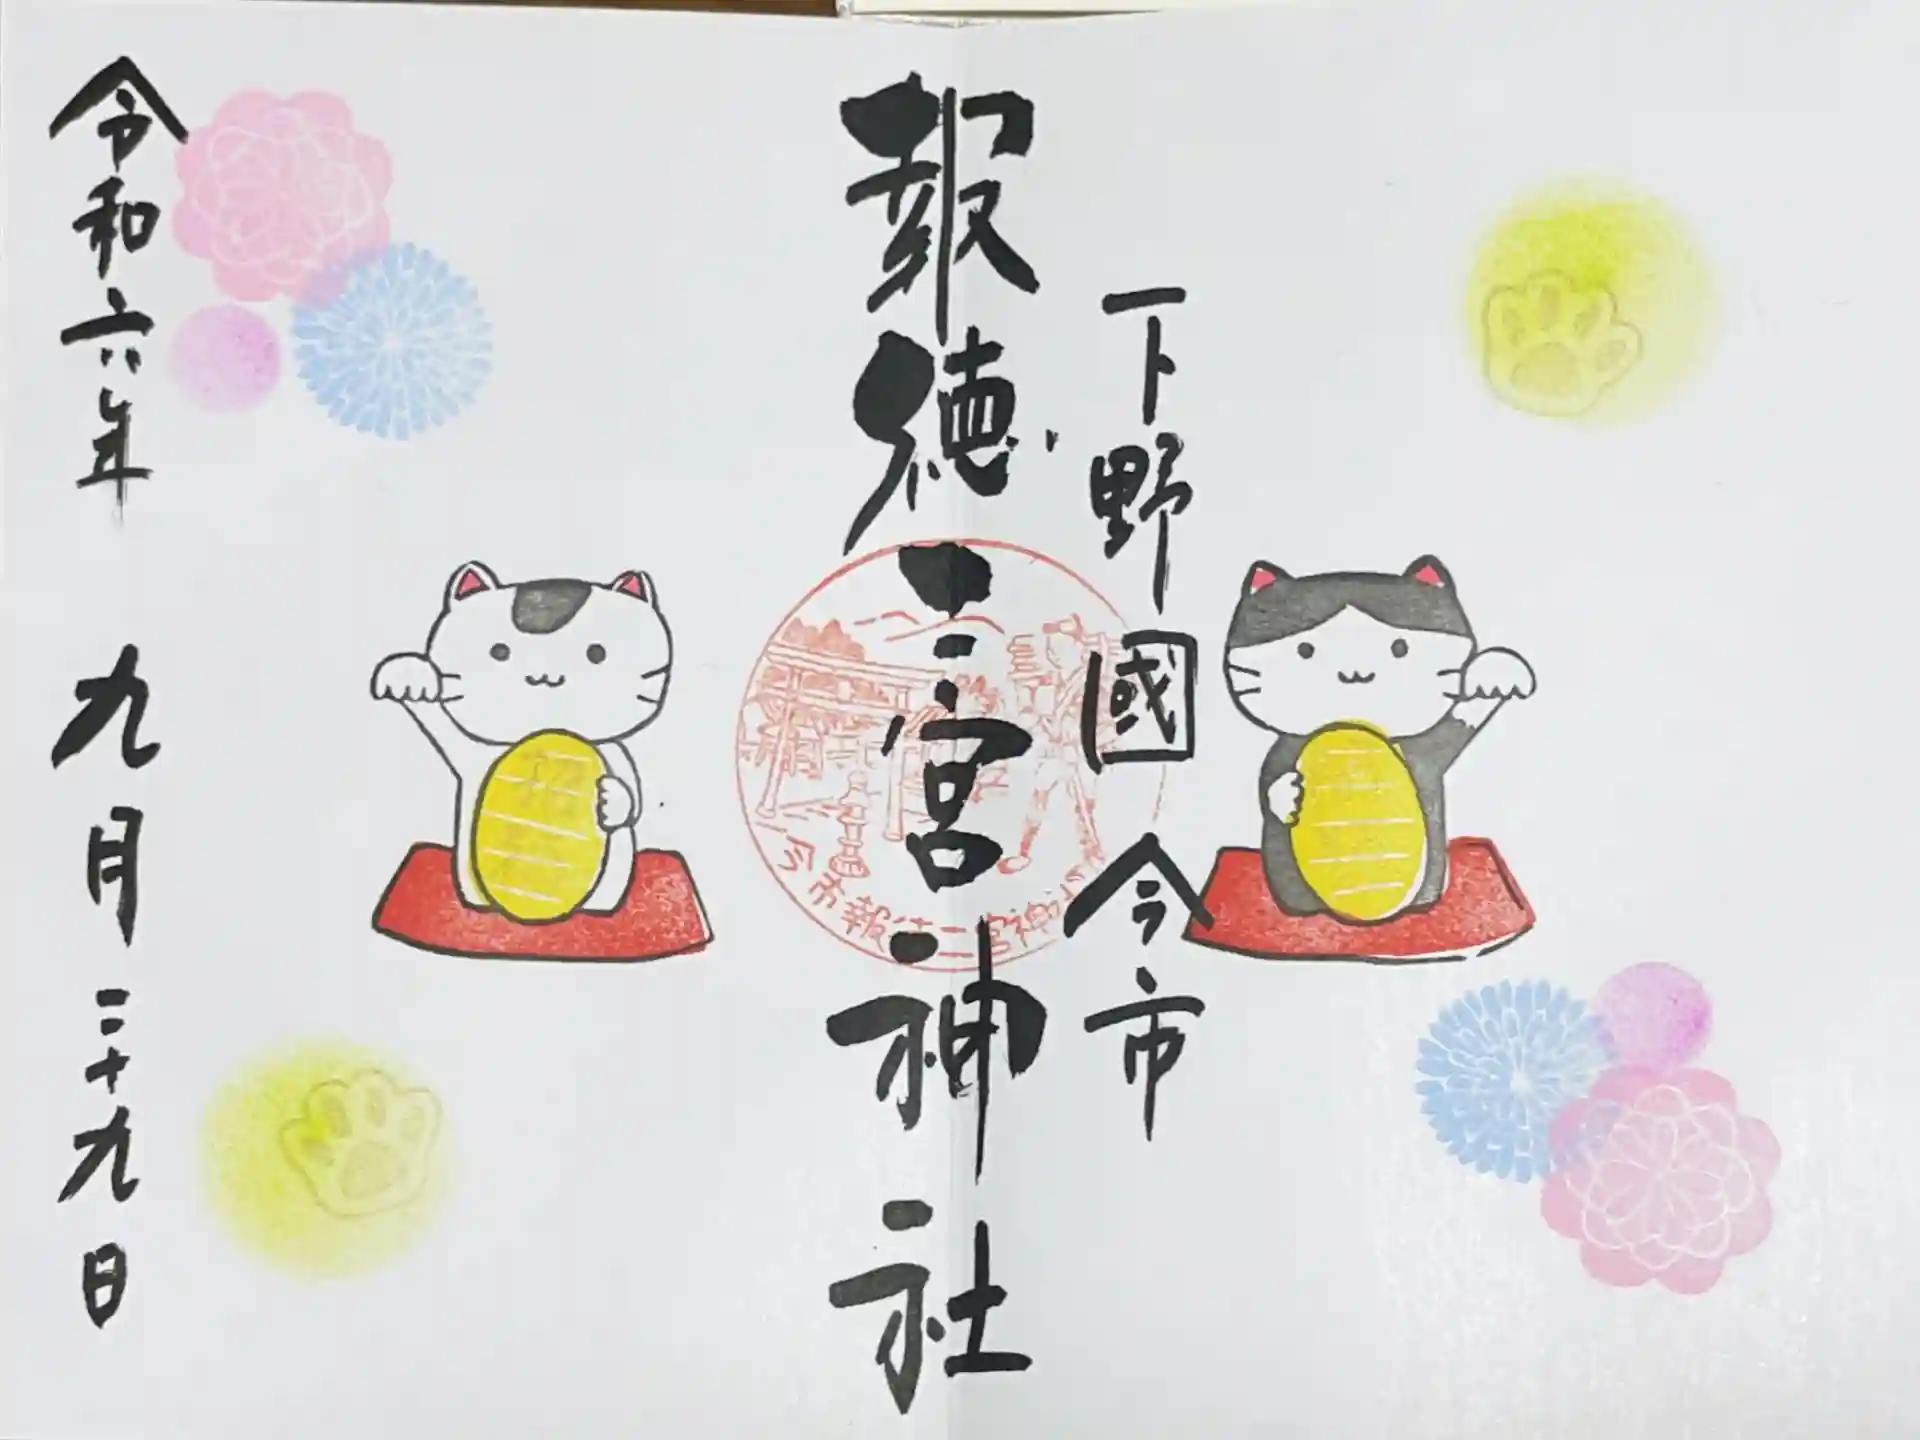 下野國 今市
報徳二宮神社
令和六年 九月二十九日
今市報徳二宮神社